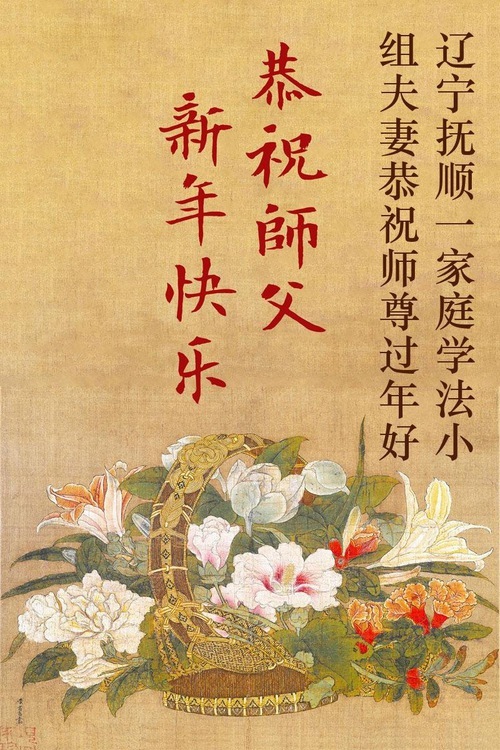 辽宁抚顺一家庭学法小
组夫妻恭祝师尊过年好
恭祝師父
新年快乐